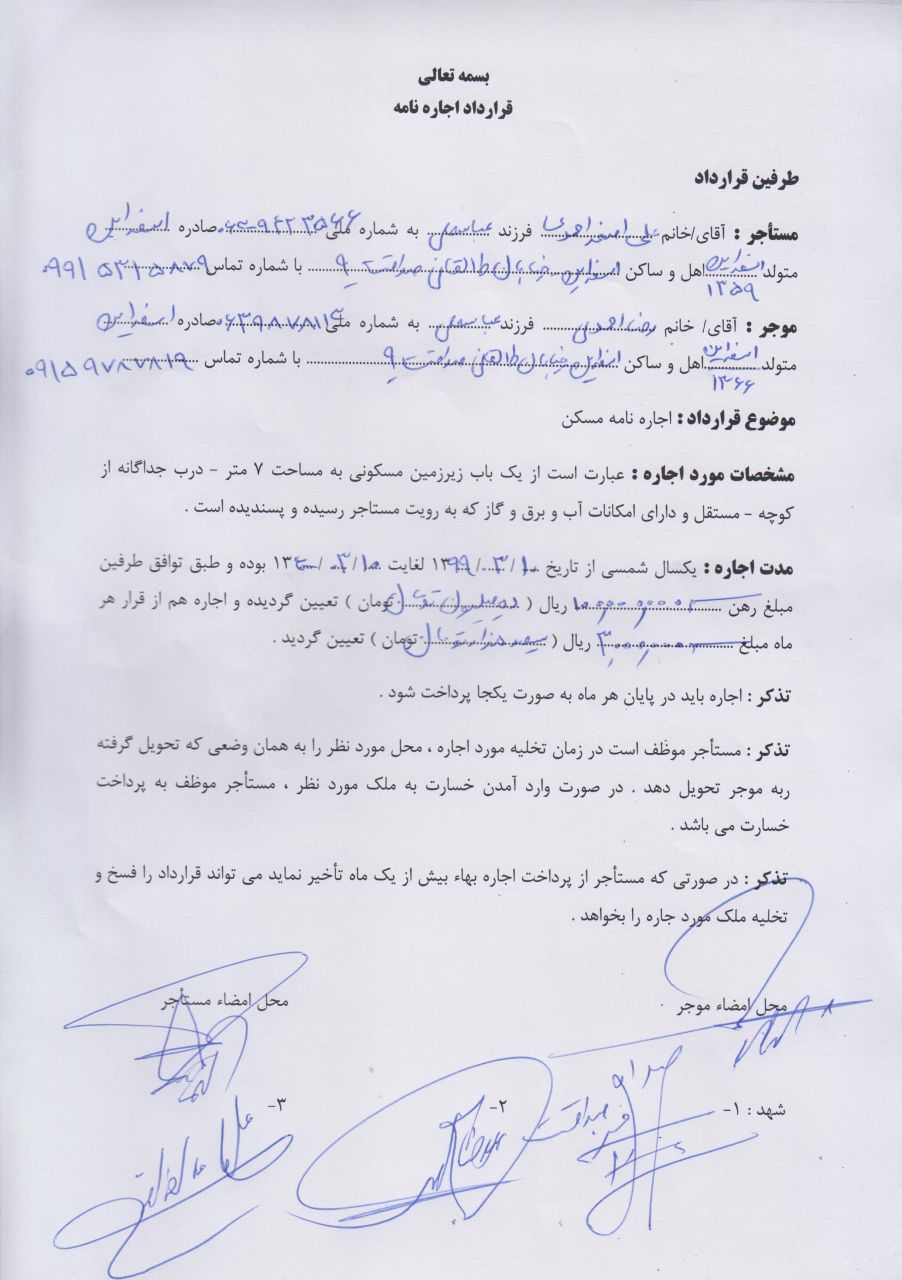 بسمه تعالی
قرارداد اجاره نامه
طرفین قرارداد
مستأجر : آقای/خانم علی اصغر احمدی فرزند عباسعلی به شماره ملی صادره اسفراین
متولد اسفراین ۱۳۵۹ اهل و ساکن اسفراین خیابان طالقانی صداقت ۹ با شماره تماس ۰۹۹۱۵۳۱۵۸۷۹
موجر : آقای/ خانم رضا احمدی فرزند عباسعلی به شماره ملی ۰۶۳۹۸۷۸۱۱۳ صادره اسفراین
متولد اسفراین ۱۳۶۶ اهل و ساکن اسفراین خیابان طالقانی صداقت ۹ با شماره تماس ۰۹۱۵۹۷۸۷۸۱۹
موضوع قرارداد : اجاره نامه مسکن
مشخصات مورد اجاره : عبارت است از یک باب زیرزمین مسکونی به مساحت ۷ متر - درب جداگانه از
کوچه - مستقل و دارای امکانات آب و برق و گاز که به رویت مستاجر رسیده و پسندیده است .
مدت اجاره : یکسال شمسی از تاریخ ۱۰/ ۳/ ۱۳۹۹ لغایت ۱۰/ ۳/ ۱۴۰۰ بوده و طبق توافق طرفین
مبلغ رهن ریال ( تومان ) تعیین گردیده و اجاره هم از قرار هر
ماه مبلغ ۳,۰۰۰,۰۰۰ ریال ( سیصد هزار تومان تومان ) تعیین گردید .
تذکر : اجاره باید در پایان هر ماه به صورت یکجا پرداخت شود .
تذکر : مستأجر موظف است در زمان تخلیه مورد اجاره ، محل مورد نظر را به همان وضعی که تحویل گرفته
ربه موجر تحویل دهد . در صورت وارد آمدن خسارت به ملک مورد نظر ، مستأجر موظف به پرداخت
خسارت می باشد .
تذکر : در صورتی که مستأجر از پرداخت اجاره بهاء بیش از یک ماه تأخیر نماید می تواند قرارداد را فسخ و
تخلیه ملک مورد جاره را بخواهد .
محل امضاء موجر محل امضاء مستأجر
شهد : ۱- ۲- ۳-
صداقت